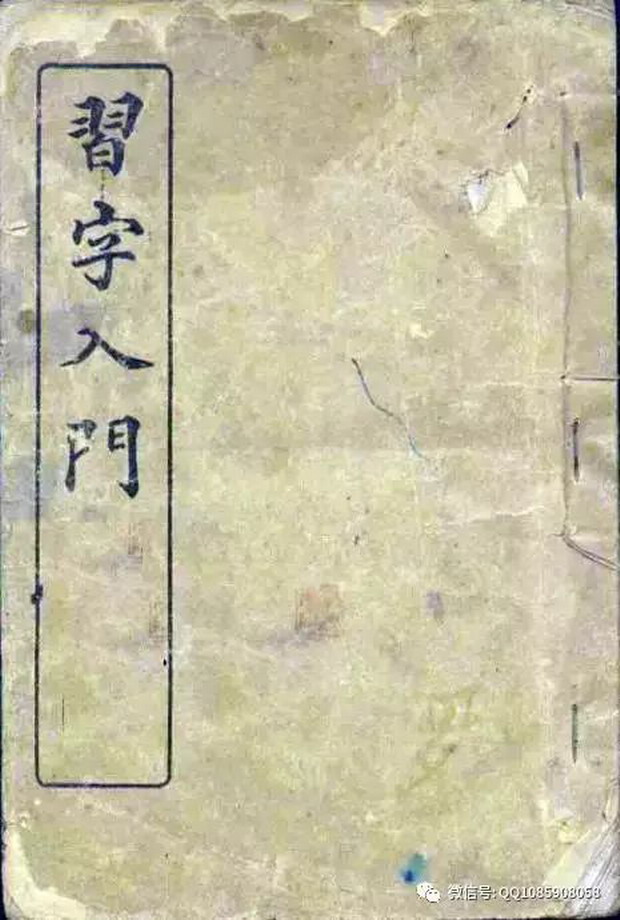 習字入門
微信号: QQ1085908058